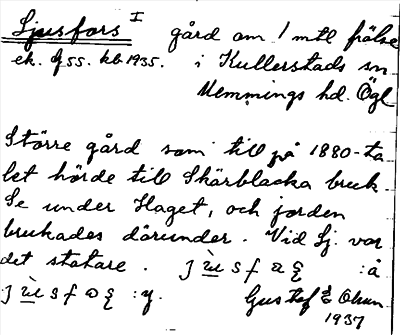 Ljusfors I gård om 1 mtl frälse
ek. bl. 55. kb. 1935. i Kullerstads sn
Memmings hd. Ögl
Större gård som till på 1880-ta
let hörde till Skärblacka bruk
Se under Haget, och jorden
brukades därunder. Vid Lj. var
det statare. :å
:y. Gustaf E Okun
1937